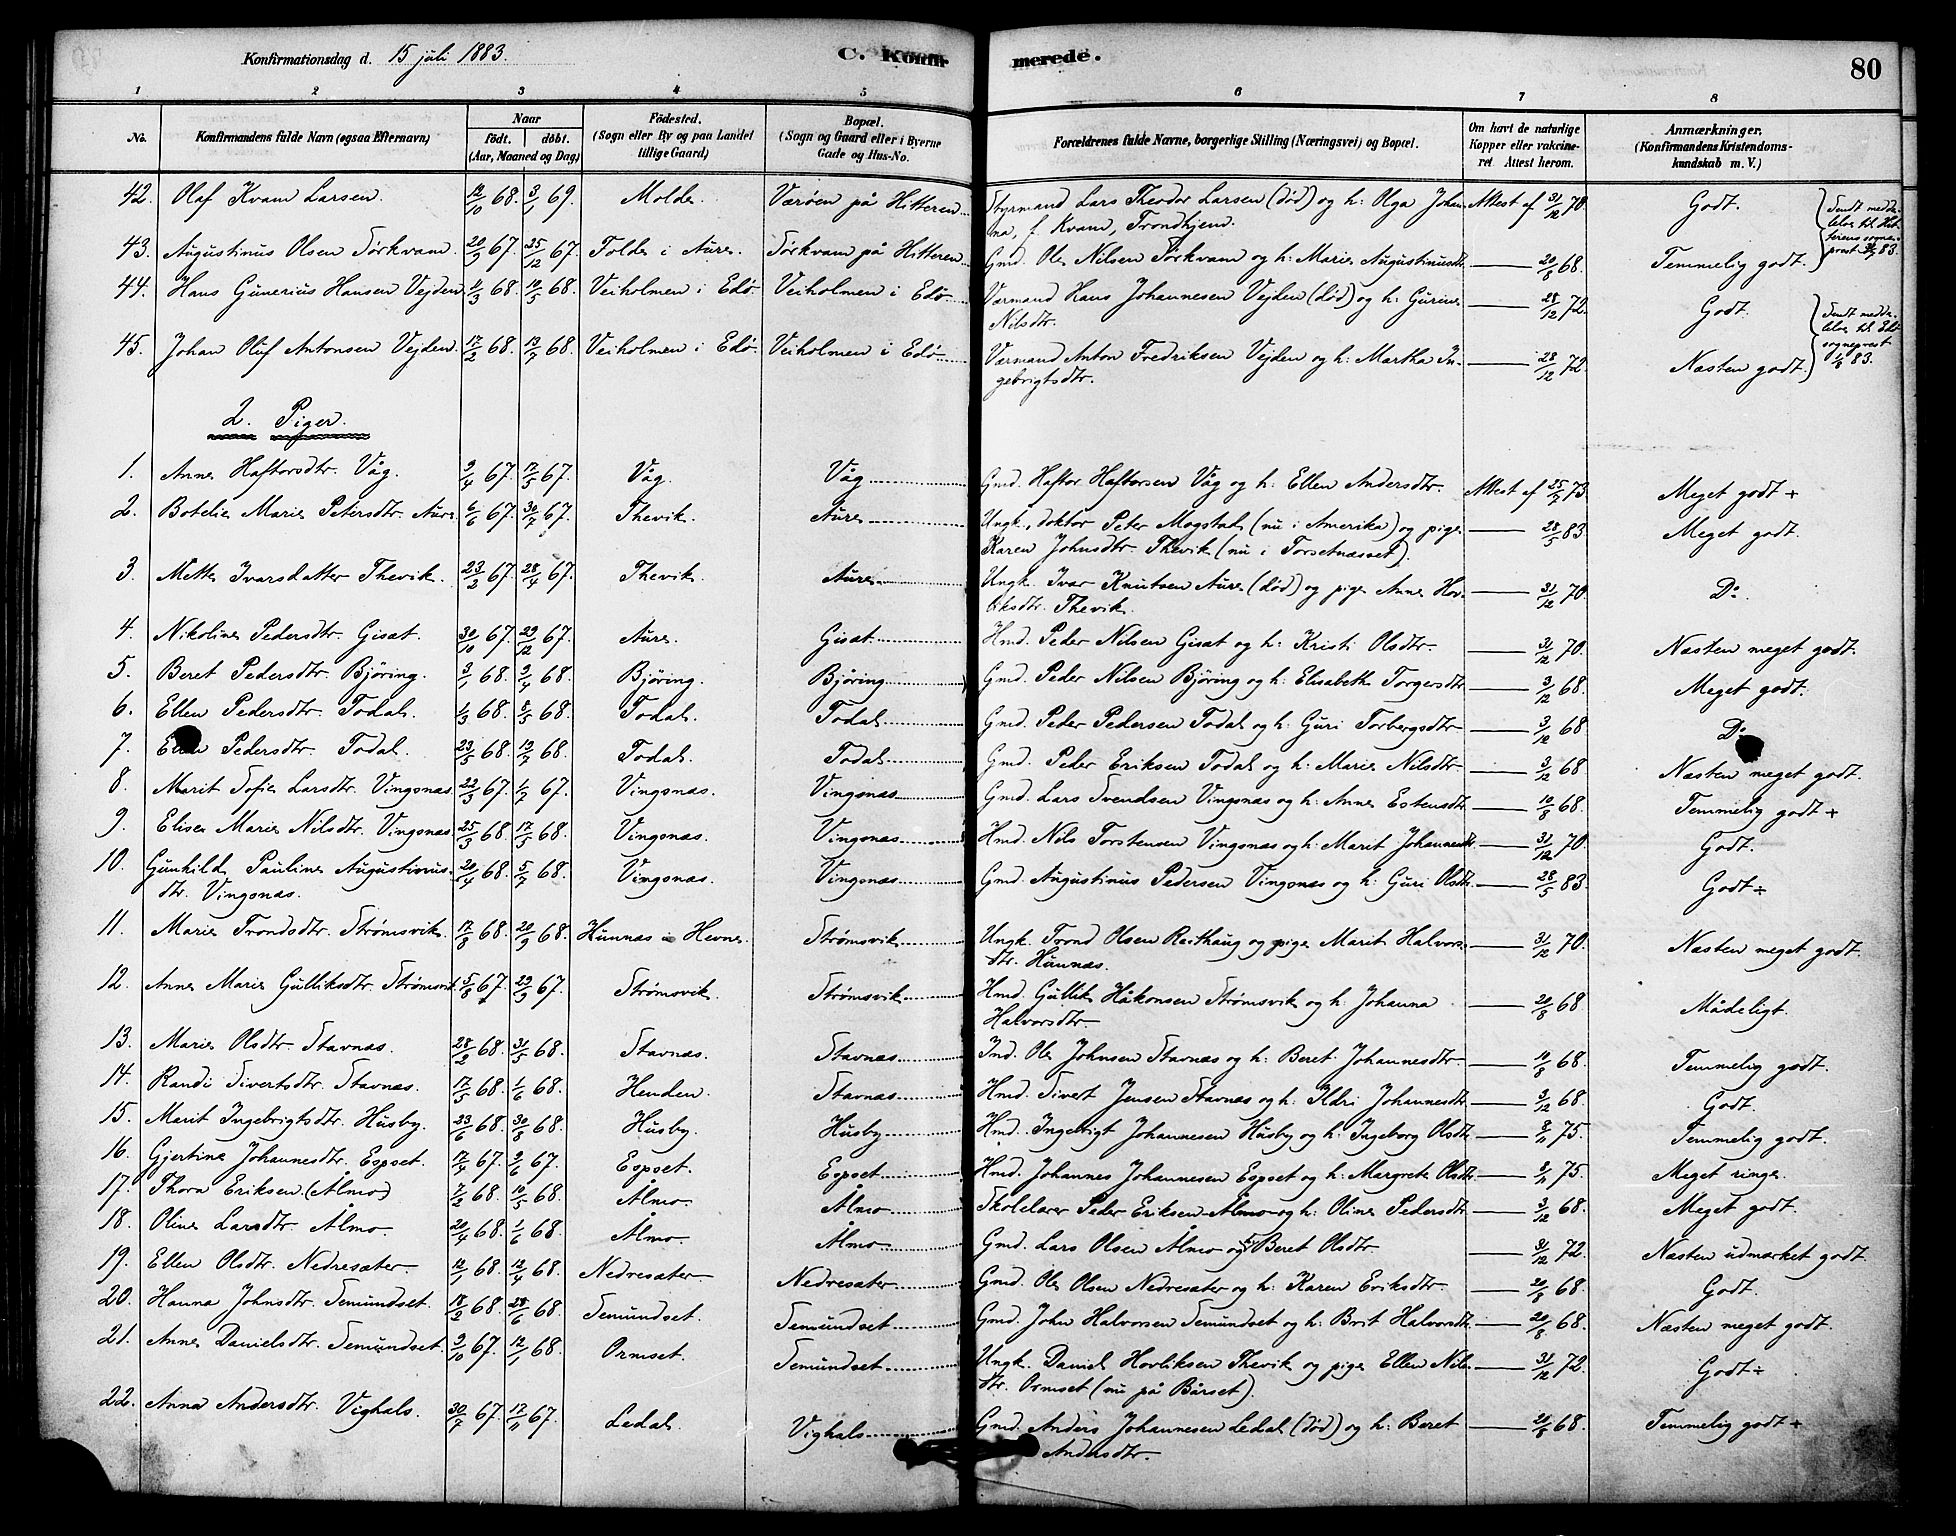 Konfirmationsdag d. 15 juli 1883. C. Konfirmerede. 80
1 2 3 4 5 6 7 8
No. Konfirmandens fulde Navn (ogsaa Efternavn) Naar födt. döbt. (Aar, Maaned og Dag) Födested. (Sogn eller By og paa Landet tillige Gaard) Bopæl. (Sogn og Gaard eller i Byerne Gade og Hus-No. Forældrenes fulde Navne, borgerlige Stilling (Næringsvei) og Bopæl. Om havt de naturlige Kopper eller vakcineret. Attest herom. Anmærkninger. (Konfirmandens Kristendomskundskab m. V.)
42. Olaf Kvam Larsen. 12/10 68. 3/1 69. Molde. Værøen på Hitteren Styrmand Lars Theodor Larsen (død) og h: Olga Johanna, f. Kvam, Trondhjem. Attest af 31/12 70. Godt.
43. Augustinus Olsen Sørkvam. 20/9 67. 25/12 67. Tolde i Aure. Sørkvam på Hitteren Gmd. Ole Nilsen Sørkvam og h: Marie Augustinusdtr. — 20/8 68. Temmelig godt. Sendt meddelse til Hitterens sogneprest 83.
44. Hans Gunerius Hansen Vejden. 3 68. 10/5 68. Veiholmen i Edø Veiholmen i Edø Værmand Hans Johannesen Vejden (død) og h: Gurine Nilsdtr. — 28/12 72. Godt.
45. Johan Oluf Antonsen Vejden. 17/2 68. 13/7 68. Veiholmen i Edø Veiholmen i Edø Værmand Anton Fredriksen Vejden og h: Martha Ingebrigtsdtr. — 28/12 72. Næsten godt. Sendt meddelse til Edø sogneprest 1/8 83.
2. Piger.
1. Anne Haftorsdtr. Våg. 9/4 67. 17/5 67. Våg. Våg Gmd. Haftor Haftorsen Våg og h: Ellen Andersdtr. Attest af 25/7 73. Meget godt +
2. Botelie Marie Petersdtr. Aure 6/6 67. 30/7 67. Thevik. Aure Ungk., doktor Peter Mogstad (nu i Amerika) og pige Karen Johnsdtr. Thevik (nu i Torsetnæsset). — 28/5 83. Meget godt.
3. Mette Ivarsdatter Thevik. 23/2 67. 28/4 67. Thevik. Aure Ungk. Ivar Knutsen Aure (død) og pige Anne Hovliksdtr. Thevik. — 31/12 70. Do.
4. Nikoline Pedersdtr. Gisat. 30/10 67. 29/12 67. Aure. Gisat Hmd. Peder Nilsen Gisat og h: Kristi Olsdtr. — 31/12 70. Næsten meget godt.
5. Beret Pedersdtr. Björing. 3/1 68. 3/4 68. Björing. Björing Gmd. Peder Nilsen Björing og h: Elisabeth Torgersdtr. — 3/12 68. Meget godt.
6. Ellen Pedersdtr. Todal. 1/3 68. 8/5 68. Todal. Todal Gmd. Peder Pedersen Todal og h: Guri Torbergsdtr. — 3/12 68. Do.
7. Ellen Pedersdtr. Todal. 23/5 68. 13/7 68. Todal. Todal Gmd. Peder Eriksen Todal og h: Marie Nilsdtr. — 3/12 68. Næsten meget godt.
8. Marit Sofie Larsdtr. Vingsnæs. 22/3 67. 1/7 67. Vingsnæs. Vingsnæs Gmd. Lars Svendsen Vingsnæs og h: Anne Estensdtr. — 10/8 68. Temmelig godt +
9. Elise Marie Nilsdtr. Vingsnæs. 25/3 68. 17/5 68. Vingsnæs. Vingsnæs Hmd. Nils Torstensen Vingsnæs og h: Marit Johannesdtr. — 31/12 70. Godt.
10. Gunhild Pauline Augustinusdtr. Vingsnæs. 20/4 68. 5/7 68. Vingsnæs. Vingsnæs Gmd. Augustinus Pedersen Vingsnæs og h: Guri Olsdtr. — 28/5 83. Godt ÷
11. Marie Trondsdtr. Strømsvik. 17/8 68. 20/9 68. Hunnæs i Hevne. Strømsvik Ungk. Trond Olsen Reithaug og pige Marit Halvorsdtr. Hunnæs. — 31/12 70. Næsten meget godt.
12. Anne Marie Gulliksdtr. Strømsvik. 5/8 67. 29/9 67. Strømsvik. Strømsvik Hmd. Gullik Håkonsen Strømsvik og h: Johanna Halvorsdtr. — 20/8 68. Mådeligt.
13. Marie Olsdtr. Stavnæs. 28/2 68. 31/5 68. Stavnæs. Stavnæs Ind. Ole Johnsen Stavnæs og h: Beret Johannesdtr. — 10/8 68. Temmelig godt.
14. Randi Sivertsdtr. Stavnæs. 17/5 68. 1/6 68. Henden. Stavnæs Hmd. Sivert Jensen Stavnæs og h: Ildri Johannesdtr. — 3/12 68. Godt.
15. Marit Ingebrigtsdtr. Husby. 23/6 68. 30/8 68. Husby. Husby Hmd. Ingebrigt Johannesen Husby og h: Ingeborg Olsdtr. — 75. Temmelig godt.
16. Gjertine Johannesdtr. Espset. 17/4 67. 9/6 67. Espset. Espset Hmd. Johannes Johannesen Espset og h: Margrete Olsdtr. — 75. Meget ringe.
17. Thora Eriksen (Ålmo) 7/2 68. 10/5 68. Ålmo. Ålmo Skolelærer Peder Eriksen Ålmo og h: Oline Pedersdtr. — 3/12 68. Meget godt.
18. Oline Larsdtr. Ålmo. 20/4 68. 1/6 68. Ålmo. Ålmo Gmd. Lars Olsen Ålmo og h: Beret Olsdtr. — 31/12 72. Næsten udmærket godt.
19. Ellen Olsdtr. Nedresæter 12/1 68. 12/4 68. Nedresæter Nedresæter Gmd. Ole Olsen Nedresæter og h: Karen Eriksdtr. — 20/8 68. Godt.
20. Hanna Johnsdtr. Semundset. 18/2 68. 28/6 68. Semundset. Semundset Gmd. John Halvorsen Semundset og h: Brit Halvorsdtr. — 20/8 68. Næsten meget godt.
21. Anne Danielsdtr. Semundset. 9/10 67. 12/1 68. Ormset. Semundset Ungk. Daniel Hovliksen Thevik og pige Ellen Nilsdtr. Ormset (nu på Bårset). — 31/12 72. Godt ÷
22. Anna Andersdtr. Vighals. 30/7 67. 17/11 67. Ledal. Vighals Gmd. Anders Johannesen Ledal (død) og h: Beret Andersdtr. — 20/8 68. Temmelig godt +